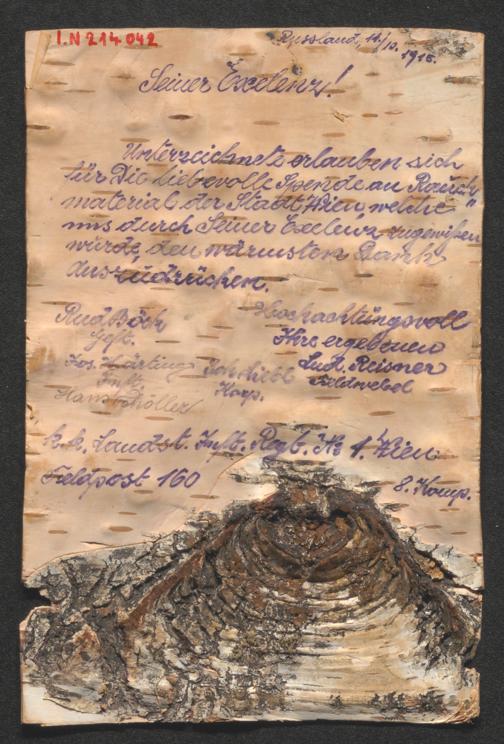 I.N 214.042
Russland, 11/10. 1915.
Seiner Exelenz!
Unterzeichnete erlauben sich
für Die liebevolle Spende an Rauch"
material der Stadt Wien welche
uns durch Seiner Exelenz zugewiesen
wurde, den wärmsten Dank
auszudrücken.
Hochachtungsvoll
Ihre ergebenen
Rud. Böck
Gefr.
Lud. Reisner
Feldwebel
Jos. Härtling
Inft.
Joh. Liebl
Korp.
Hans Höller
k.k. Landst. Inft. Regt. Nr 1. Wien.
Feldpost 160
8. Komp.